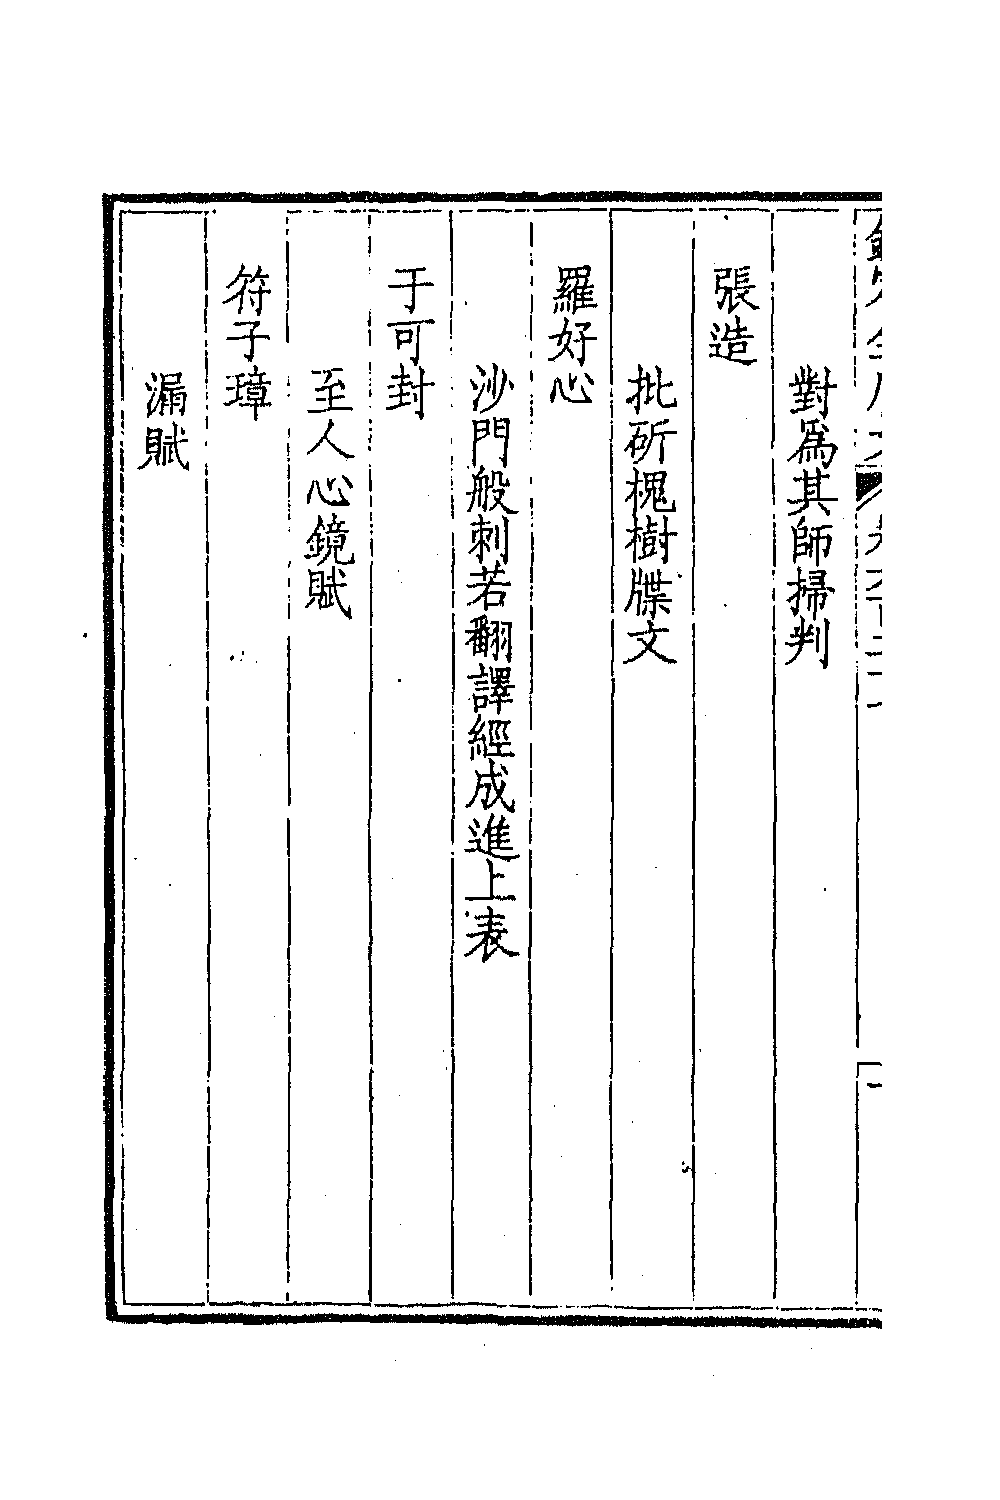 對爲其師掃判
張造
批斫槐樹牒文
羅好心
沙門般刺若翻譯經成進上表
于可封
至人心鏡賦
符子璋
漏賦